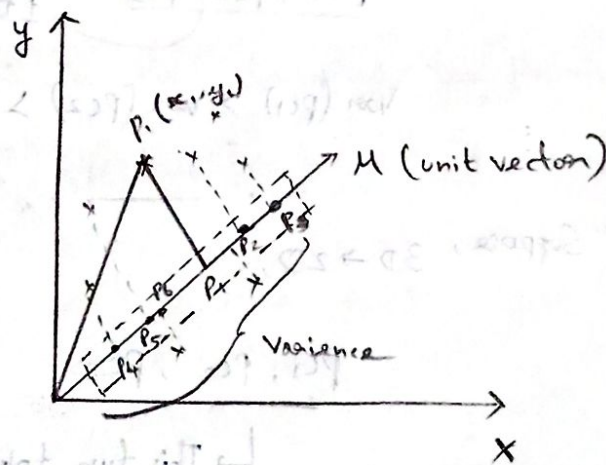 y
P₁ (x₁, y₁)
μ (unit vector)
P₂
P₃
P₁
P₆
P₅
P₄
Varience
X